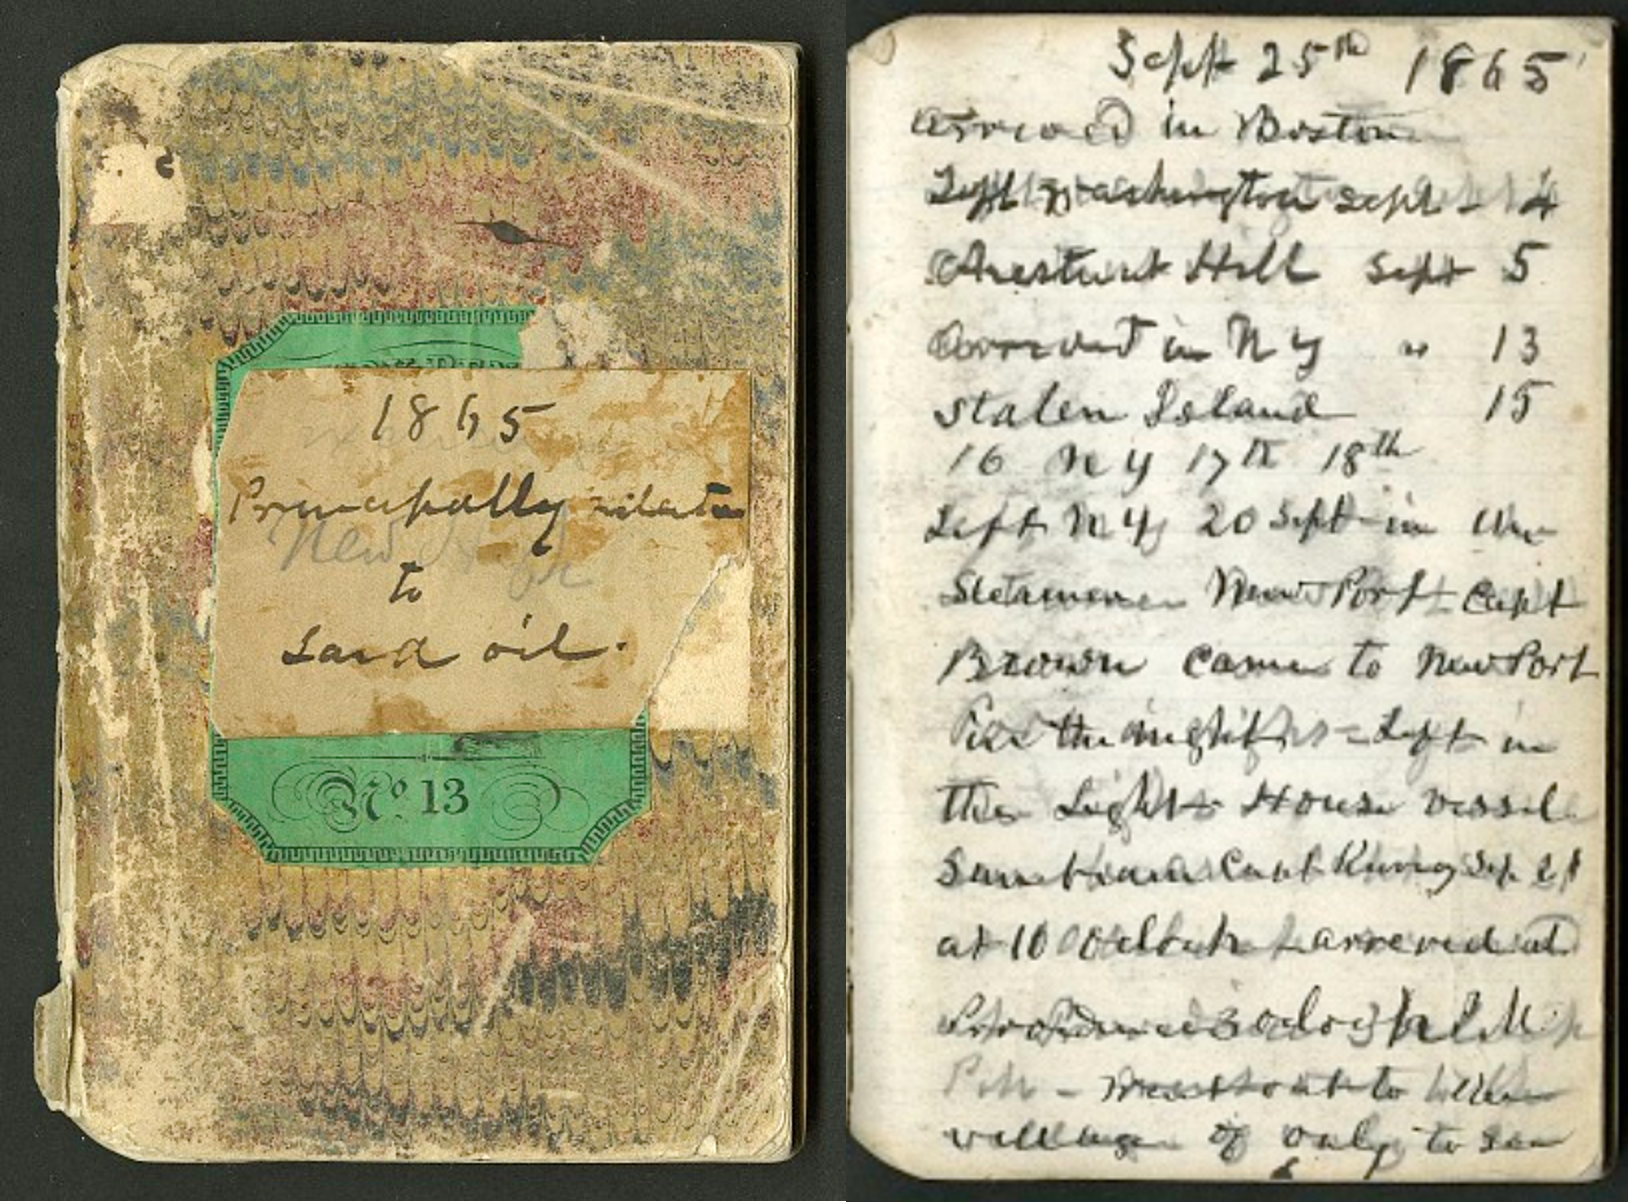 1865
Principally relate
New
to
Lard oil.
No. 13
Sept 25th 1865
Arrived in Boston
Left Washington Sept - 4
Chestnut Hill Sept 5
Arrived in N Y " 13
Staten Island 15
16 N Y 17th 18th
Left N Y 20 Sept in the
Steamer NewPort Capt
Brown came to NewPort
the night - Left in
the Light House vessel
Capt King Sep 21
at 10 Oclock arrived at
Providence 3 oclock P.M.
P M - went out to
village of only to see